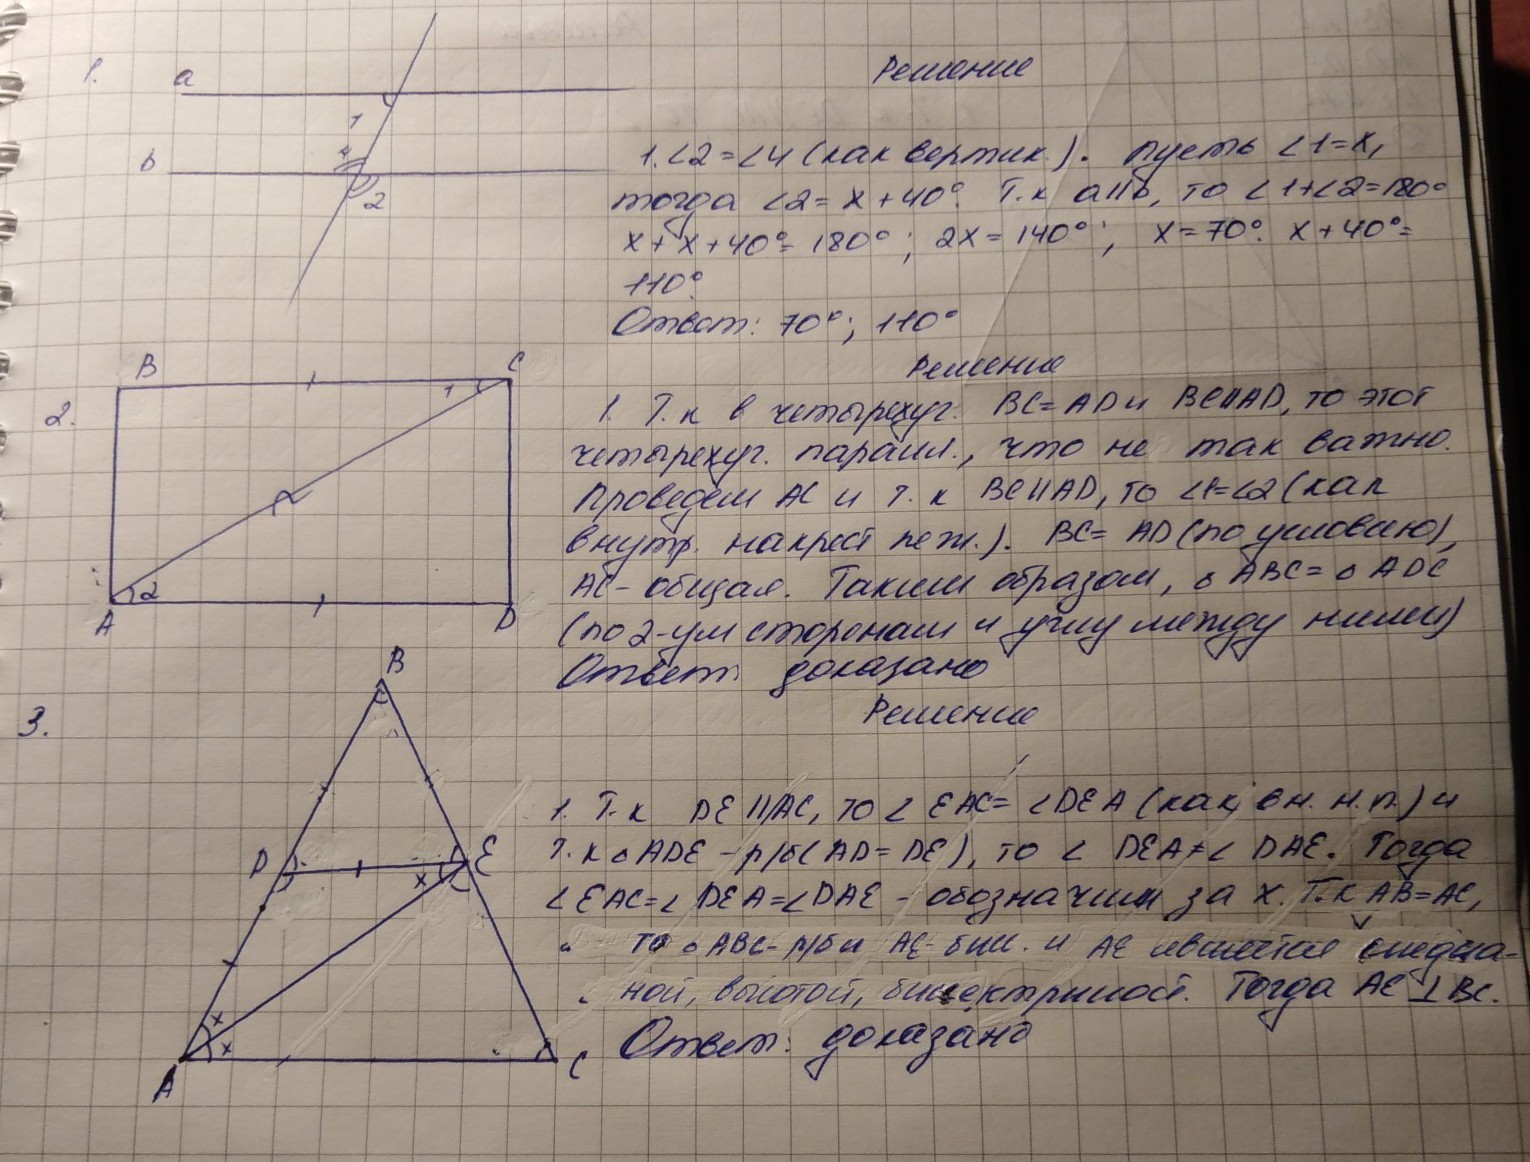 1.
a
1
4
b
2
Решение
1. ∠2=∠4 (как вертик.). Пусть ∠1=x,
тогда ∠2= x+40°. Т.к a||b, то ∠1+∠2=180°
x+x+40°=180°; 2x=140°; x=70°. x+40°=
110°.
Ответ: 70°; 110°
2.
B
C
1
2
A
D
Решение
1. Т.к в четырехуг. BC=AD и BC||AD, то этот
четырехуг. паралл., что не так важно.
Проведем AC и т.к BC||AD, то ∠1=∠2 (как
внутр. накрест леж.). BC= AD (по условию),
AC- общая. Таким образом, ▵ ABC=▵ ADC
(по 2-ум сторонам и углу между ними)
Ответ: доказано
3.
B
D
E
x
x
x
A
C
Решение
1. Т.к DE||AC, то ∠ EAC= ∠DEA (как вн. н. л.) и
т.к ▵ ADE - р/б (AD=DE), то ∠ DEA=∠ DAE. Тогда
∠EAC=∠ DEA=∠DAE - обозначим за x. Т.к AB=AC,
то ▵ ABC- р/б и AE- бис. и AE является медиа-
ной, высотой, биссектрисой. Тогда AE ⊥ BC.
Ответ: доказано